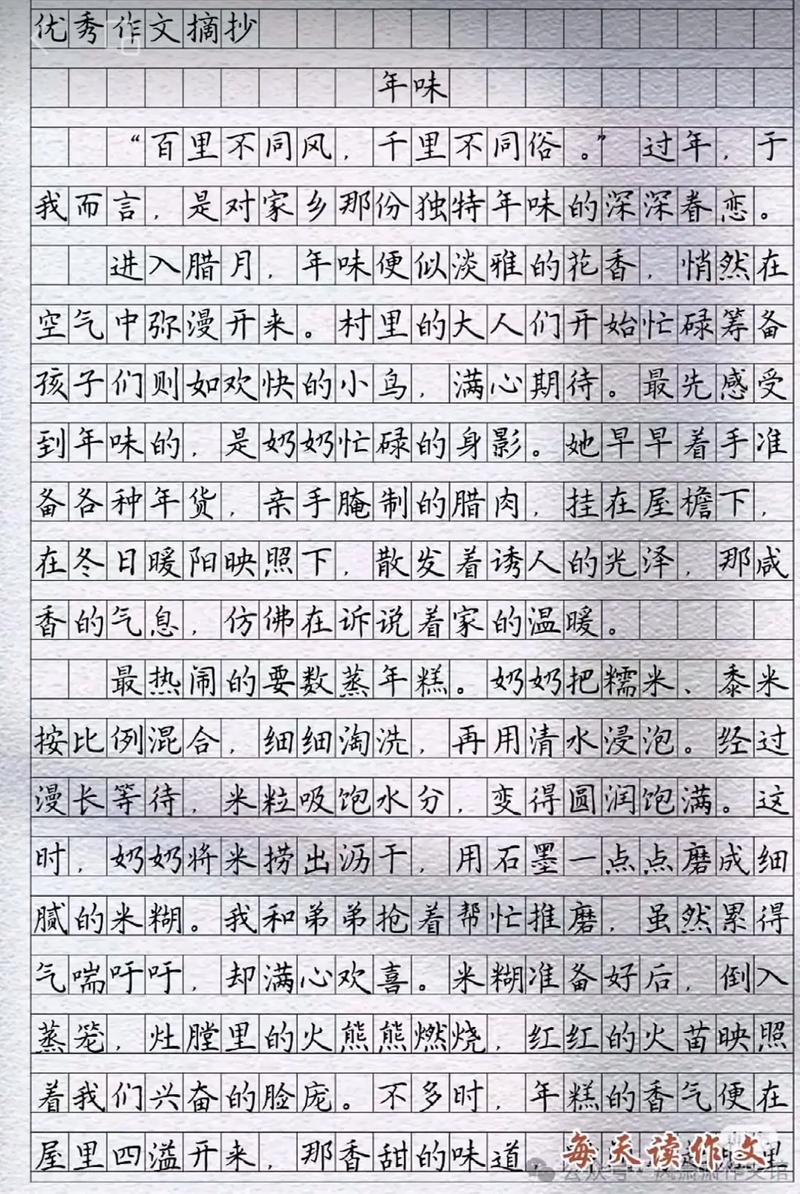 优秀作文摘抄
年味
“百里不同风，千里不同俗。”过年，于
我而言，是对家乡那份独特年味的深深眷恋。
进入腊月，年味便似淡雅的花香，悄然在
空气中弥漫开来。村里的大人们开始忙碌筹备
孩子们则如欢快的小鸟，满心期待。最先感受
到年味的，是奶奶忙碌的身影。她早早着手准
备各种年货，亲手腌制的腊肉，挂在屋檐下，
在冬日暖阳映照下，散发着诱人的光泽，那咸
香的气息，仿佛在诉说着家的温暖。
最热闹的要数蒸年糕。奶奶把糯米、黍米
按比例混合，细细淘洗，再用清水浸泡。经过
漫长等待，米粒吸饱水分，变得圆润饱满。这
时，奶奶将米捞出沥干，用石墨一点点磨成细
腻的米糊。我和弟弟抢着帮忙推磨，虽然累得
气喘吁吁，却满心欢喜。米糊准备好后，倒入
蒸笼，灶膛里的火熊熊燃烧，红红的火苗映照
着我们兴奋的脸庞。不多时，年糕的香气便在
屋里四溢开来，那香甜的味道，
每天读作文
公众号